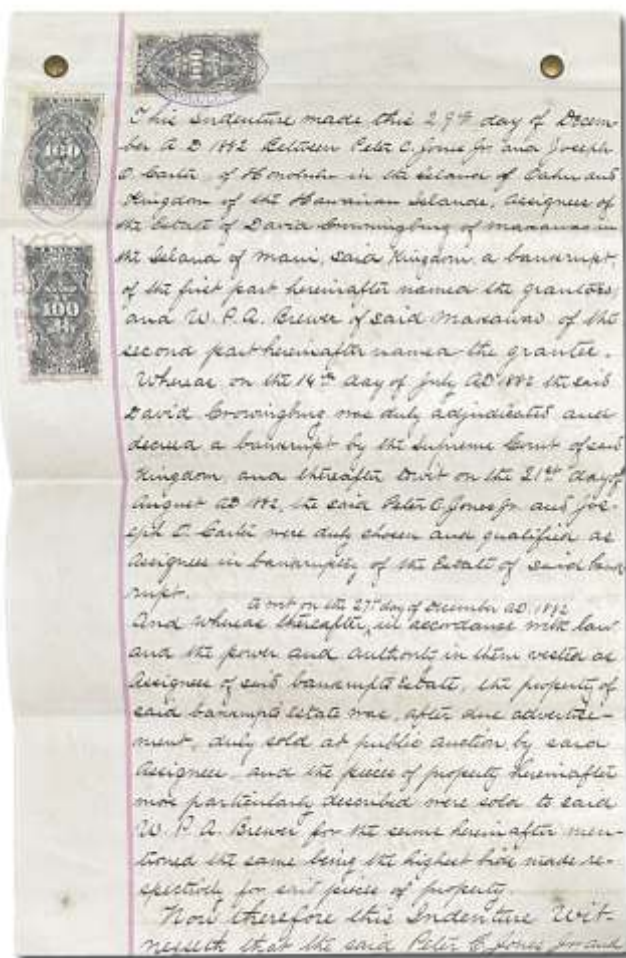 100
100
100
This Indenture made this 29th day of Decem-
ber A D 1882 Between Peter C. Jones Jr and Joseph
O. Carter, of Honolulu in the Island of Oahu and
Kingdom of the Hawaiian Islands, Assignees of
the Estate of David Crowningburg of Makawao in
the Island of Maui, said Kingdom, a bankrupt,
of the first part hereinafter named the grantors,
and W. P. A. Brewer of said Makawao of the
second part hereinafter named the grantee.
Whereas on the 14th day of July AD 1882 the said
David Crowningburg was duly adjudicated and
decreed a bankrupt by the Supreme Court of said
Kingdom, and thereafter to wit on the 21st day of
August AD 1882, the said Peter C. Jones Jr. and Jos-
eph O. Carter were duly chosen and qualified as
Assignees in bankruptcy of the Estate of said bank-
rupt.
to wit on the 27th day of December AD. 1882
And whereas thereafter, in accordance with law
and the power and authority in them vested as
Assignees of said bankrupts Estate, the property of
said bankrupts Estate was, after due advertise-
ment, duly sold at public auction by said
Assignees, and the pieces of property hereinafter
more particularly described were sold to said
W. P. A. Brewer for the sums hereinafter men-
tioned the same being the highest bids made re-
spectively for said pieces of property.
Now therefore this Indenture Wit-
nesseth that the said Peter C. Jones Jr and